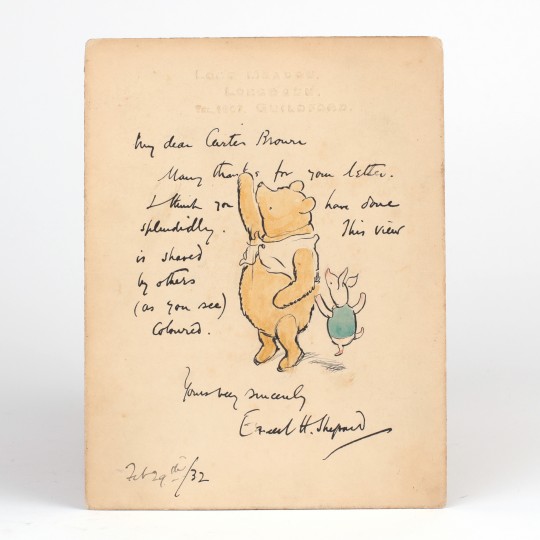 Long Meadow,
Longdown,
Guildford.
My dear Carter Browne
Many thanks for your letter.
I think you have done
splendidly. This view
is shared
by others
(as you see)
Coloured.
Yours very sincerely
Ernest H. Shepard
Feb 29th/32